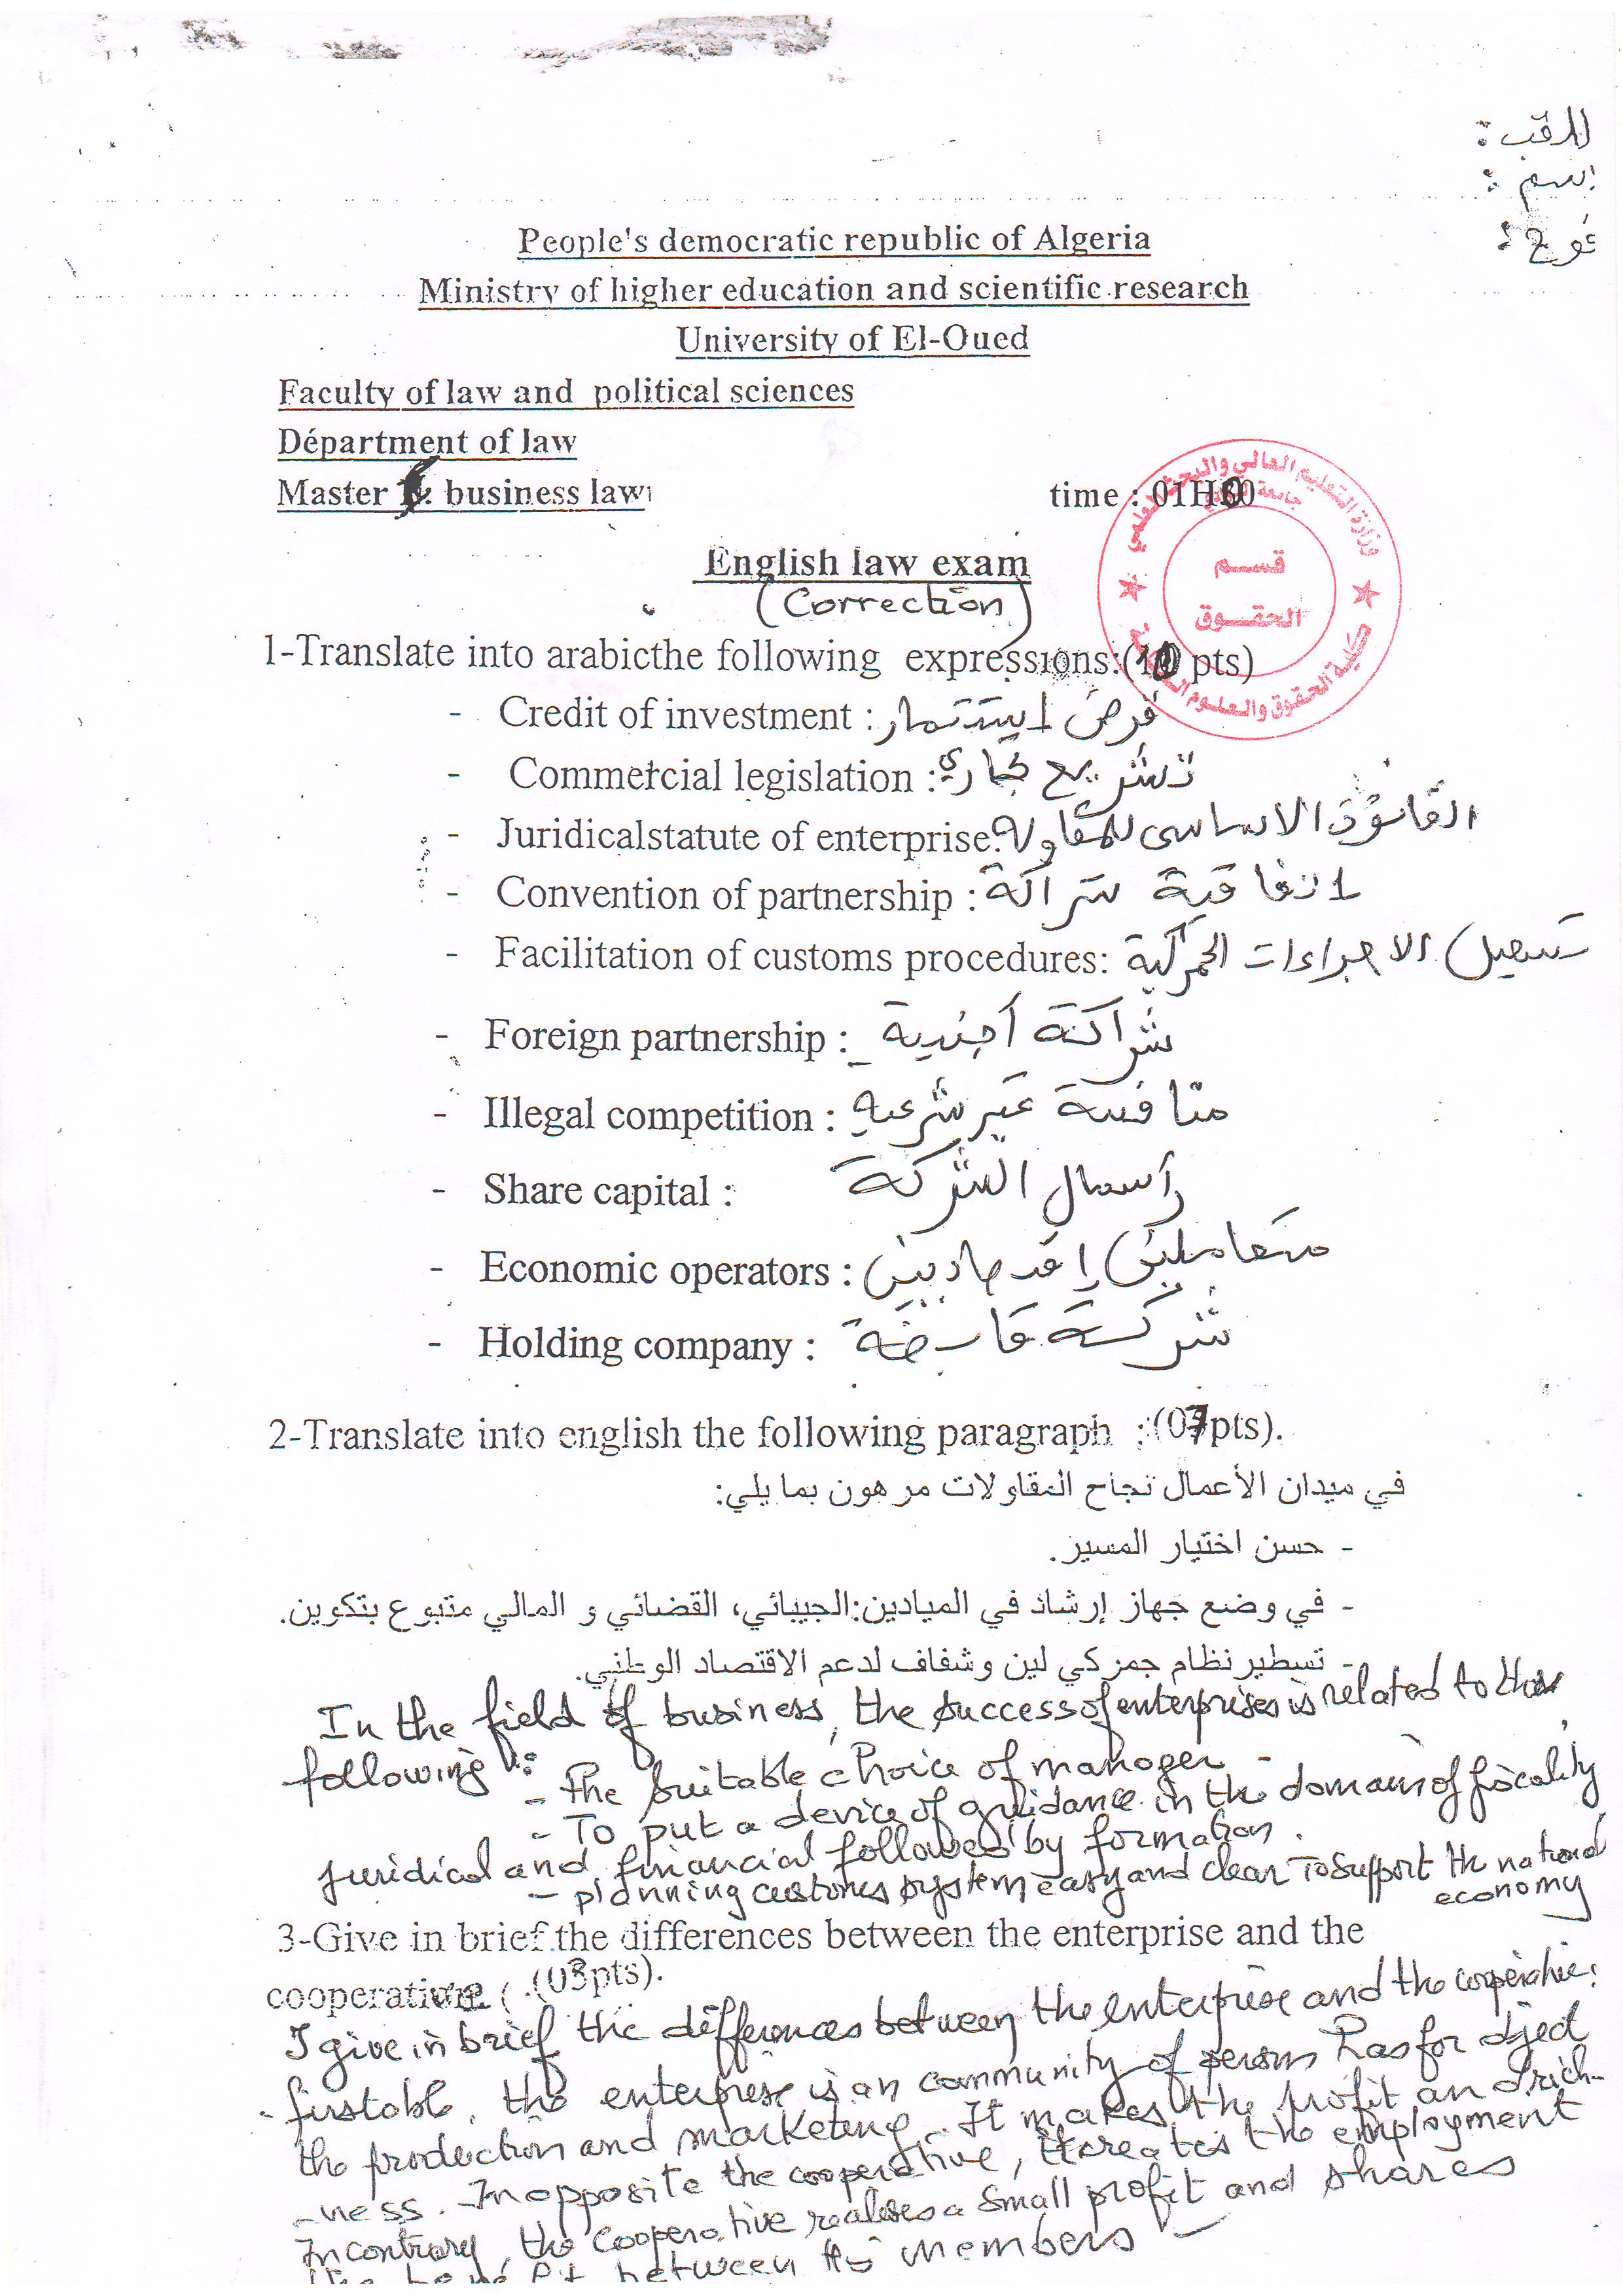 للقب :
اسم :
فوج :
People's democratic republic of Algeria
Ministry of higher education and scientific research
University of El-Oued
Faculty of law and political sciences
Départment of law
Master : business law
time : 01H00
وزارة التعليم العالي والبحث العلمي
جامعة الوادي
قسم
الحقوق
كلية الحقوق والعلوم السياسية
English law exam
(Correction)
1-Translate into arabicthe following expressions:(10 pts)
- Credit of investment : قرض إستثمار
- Commercial legislation : تشريع تجاري
- Juridicalstatute of enterprise: القانون الاساسي للمقاولة
- Convention of partnership : إتفاقية شراكة
- Facilitation of customs procedures: تسهيل الاجراءات الجمركية
- Foreign partnership : شراكة أجنبية
- Illegal competition : منافسة غير شرعية
- Share capital : رأسمال الشركة
- Economic operators : متعاملين إقتصاديين
- Holding company : شركة قابضة
2-Translate into english the following paragraph :(07pts).
في ميدان الأعمال نجاح المقاولات مرهون بما يلي:
- حسن اختيار المسير.
- في وضع جهاز إرشاد في الميادين:الجيبائي، القضائي و المالي متبوع بتكوين.
- تسطير نظام جمركي لين وشفاف لدعم الاقتصاد الوطني.
In the field of business, the success of enterprises is related to the
following :
- The suitable choice of manager -
- To put a device of guidance in the domains of fiscality
juridical and financial followed by formation.
- planning customs system easy and clear To support the national
economy
3-Give in brief the differences between the enterprise and the
cooperative (03pts).
I give in brief the differences between the enterprise and the cooperative:
- firstable, the enterprise is an community of persons has for object
the production and marketing. It makes the profit and rich-
-ness. In opposite the cooperative, it creates the employment
In contrary, the cooperative realises a small profit and shares
between its members